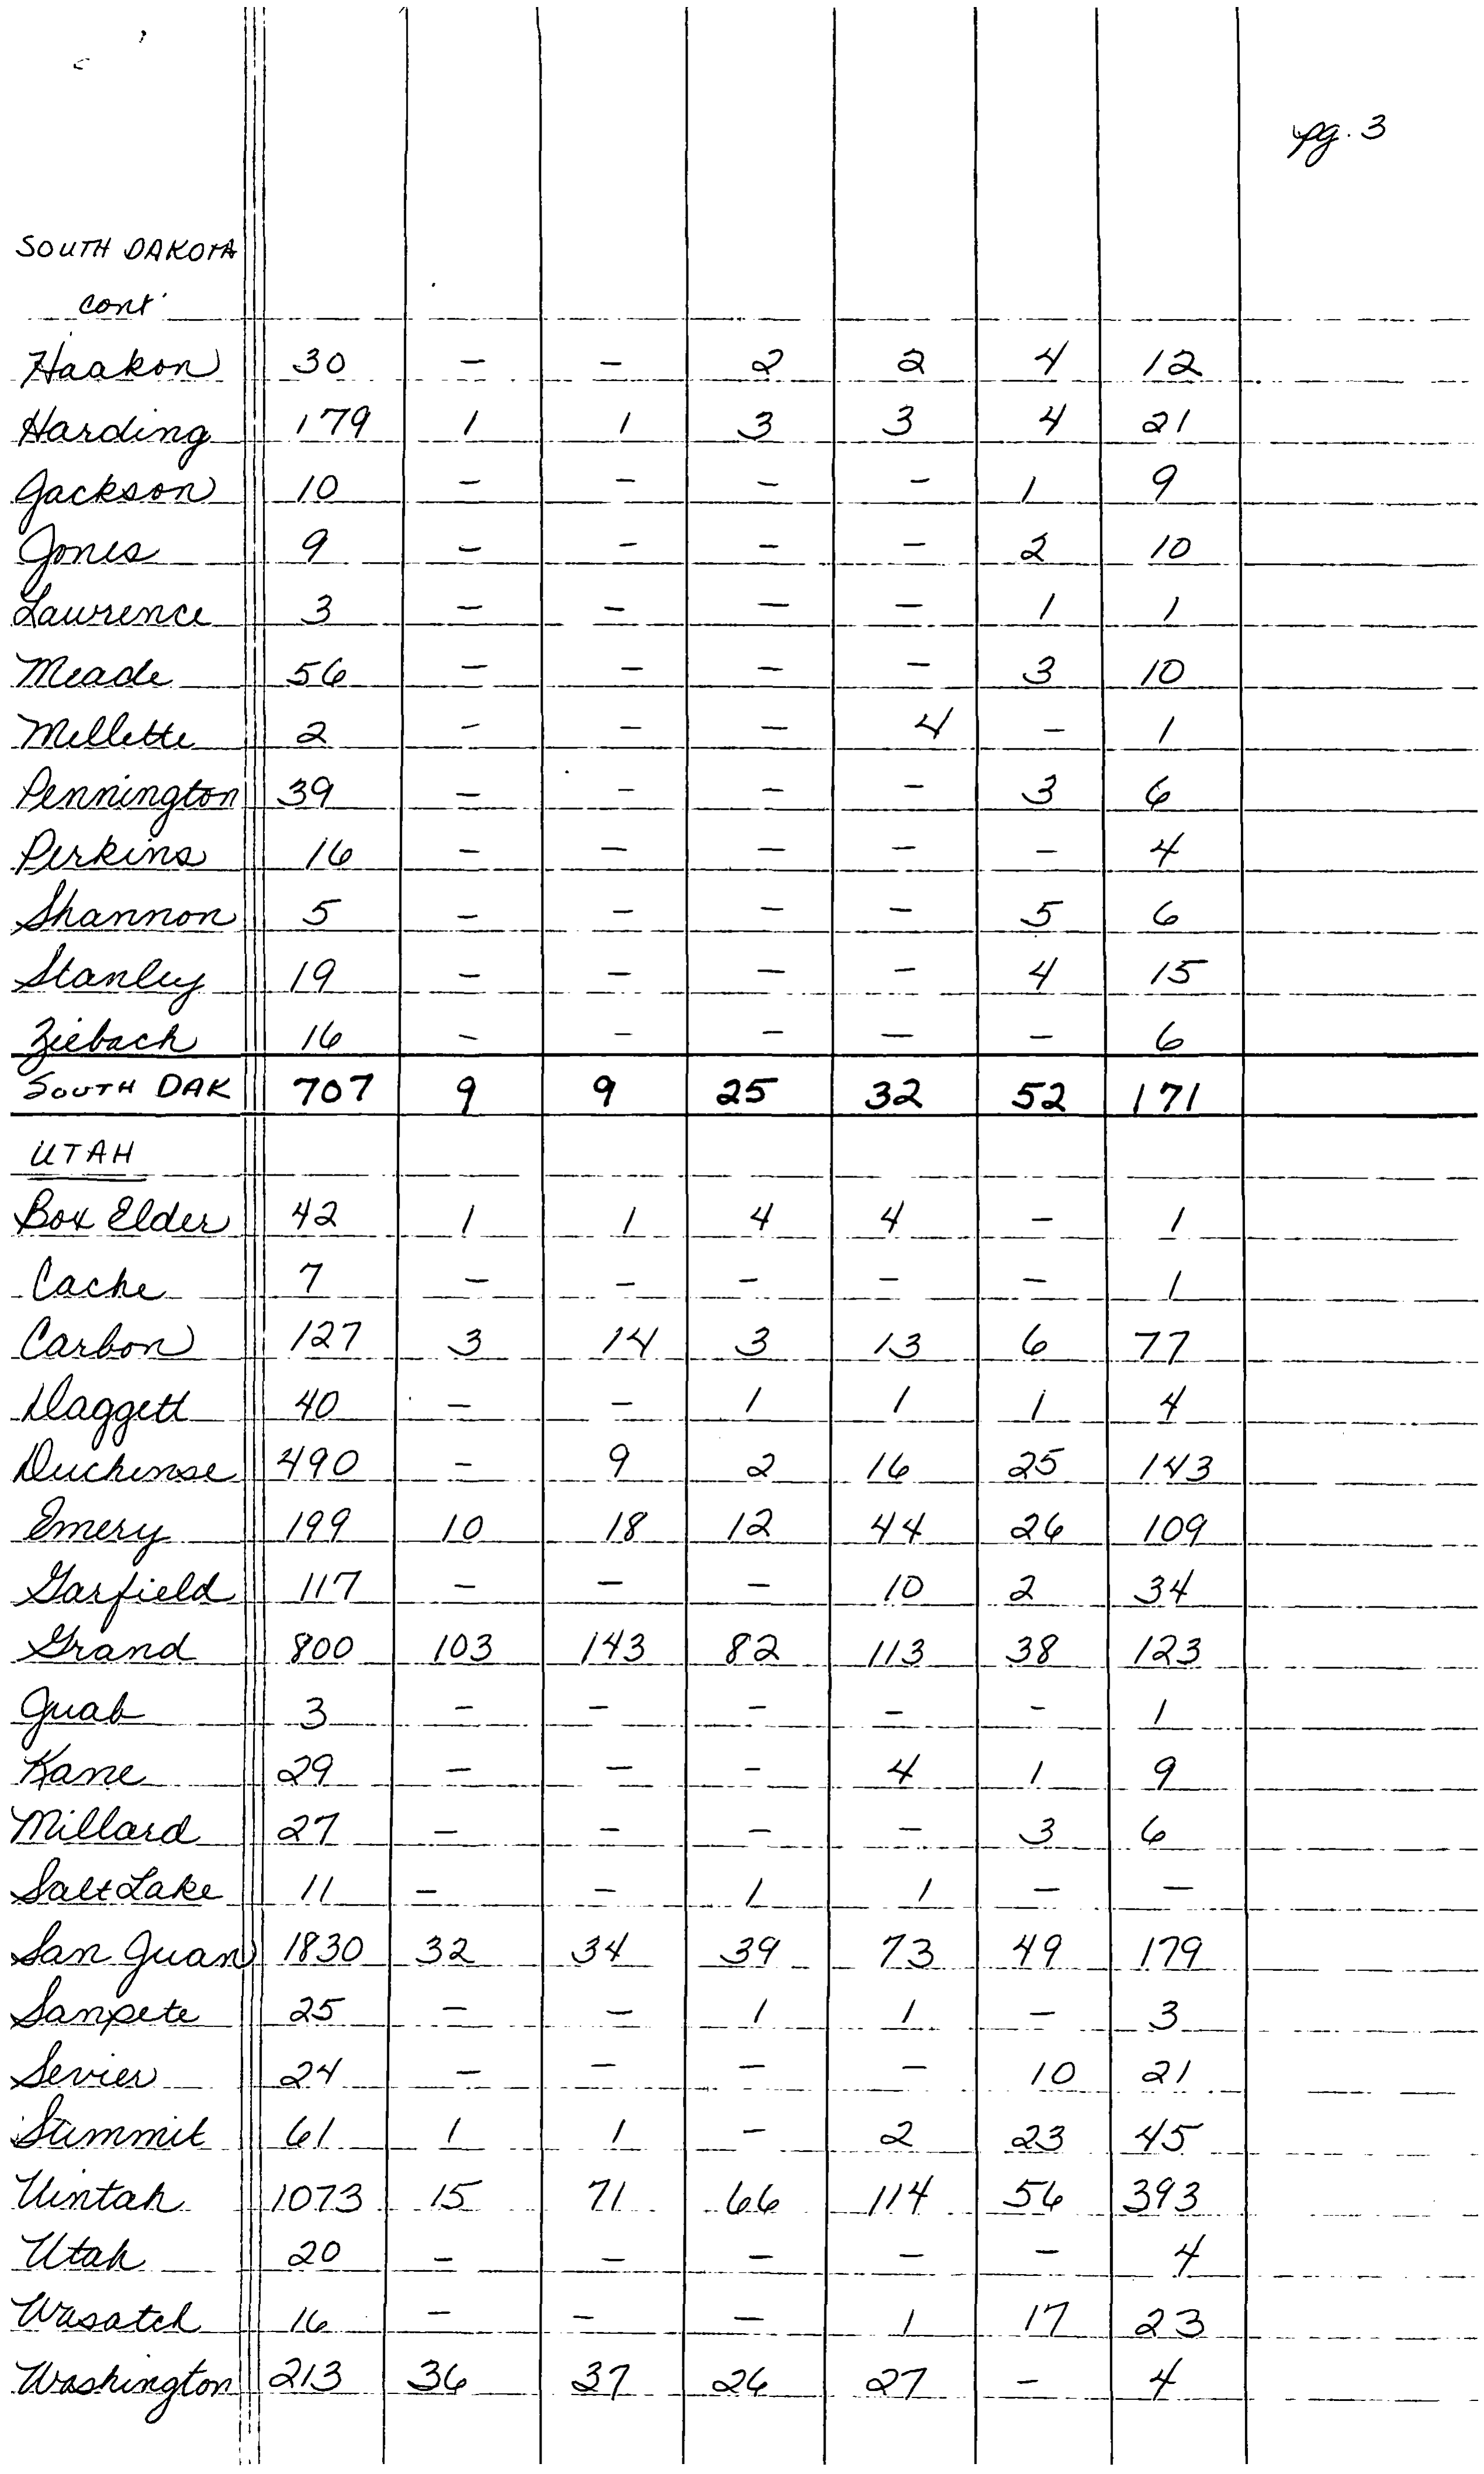 pg. 3
SOUTH DAKOTA
cont'
Haakon 30 - - 2 2 4 12
Harding 179 1 1 3 3 4 21
Jackson 10 - - - - 1 9
Jones 9 - - - - 2 10
Lawrence 3 - - - - 1 1
Meade 56 - - - - 3 10
Mellette 2 - - - 4 - 1
Pennington 39 - - - - 3 6
Perkins 16 - - - - - 4
Shannon 5 - - - - 5 6
Stanley 19 - - - - 4 15
Ziebach 16 - - - - - 6
SOUTH DAK 707 9 9 25 32 52 171
UTAH
Box Elder 42 1 1 4 4 - 1
Cache 7 - - - - - 1
Carbon 127 3 14 3 13 6 77
Daggett 40 - - 1 1 1 4
Duchense 490 - 9 2 16 25 143
Emery 199 10 18 12 44 26 109
Garfield 117 - - - 10 2 34
Grand 800 103 143 82 113 38 123
Juab 3 - - - - - 1
Kane 29 - - - 4 1 9
Millard 27 - - - - 3 6
Salt Lake 11 - - 1 1 - -
San Juan 1830 32 34 39 73 49 179
Sanpete 25 - - 1 1 - 3
Sevier 24 - - - - 10 21
Summit 61 1 1 - 2 23 45
Uintah 1073 15 71 66 114 56 393
Utah 20 - - - - - 4
Wasatch 16 - - - 1 17 23
Washington 213 36 37 26 27 - 4